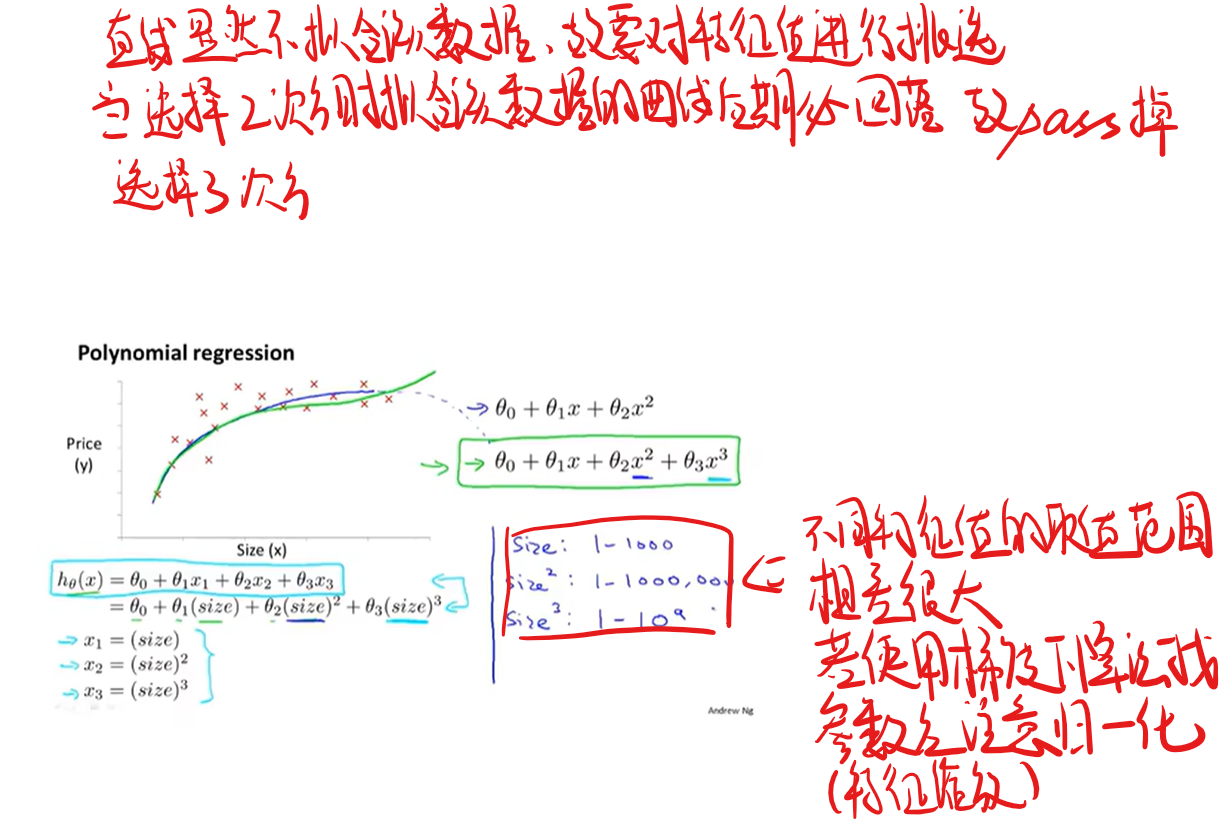 直线显然不拟合该数据、故要对特征值进行挑选
当选择2次方时拟合该数据的曲线后期会回落 故pass掉
选择3次方
Polynomial regression
Price
(y)
Size (x)
→ θ₀ + θ₁x + θ₂x²
→ → θ₀ + θ₁x + θ₂x² + θ₃x³
hθ(x) = θ₀ + θ₁x₁ + θ₂x₂ + θ₃x₃
= θ₀ + θ₁(size) + θ₂(size)² + θ₃(size)³
→ x₁ = (size)
→ x₂ = (size)²
→ x₃ = (size)³
Size: 1-1000
Size²: 1-1000,00
Size³: 1-10⁹
Andrew Ng
不同特征值的取值范围
相差很大
若使用梯度下降法找
参数应注意归一化
(特征缩放)